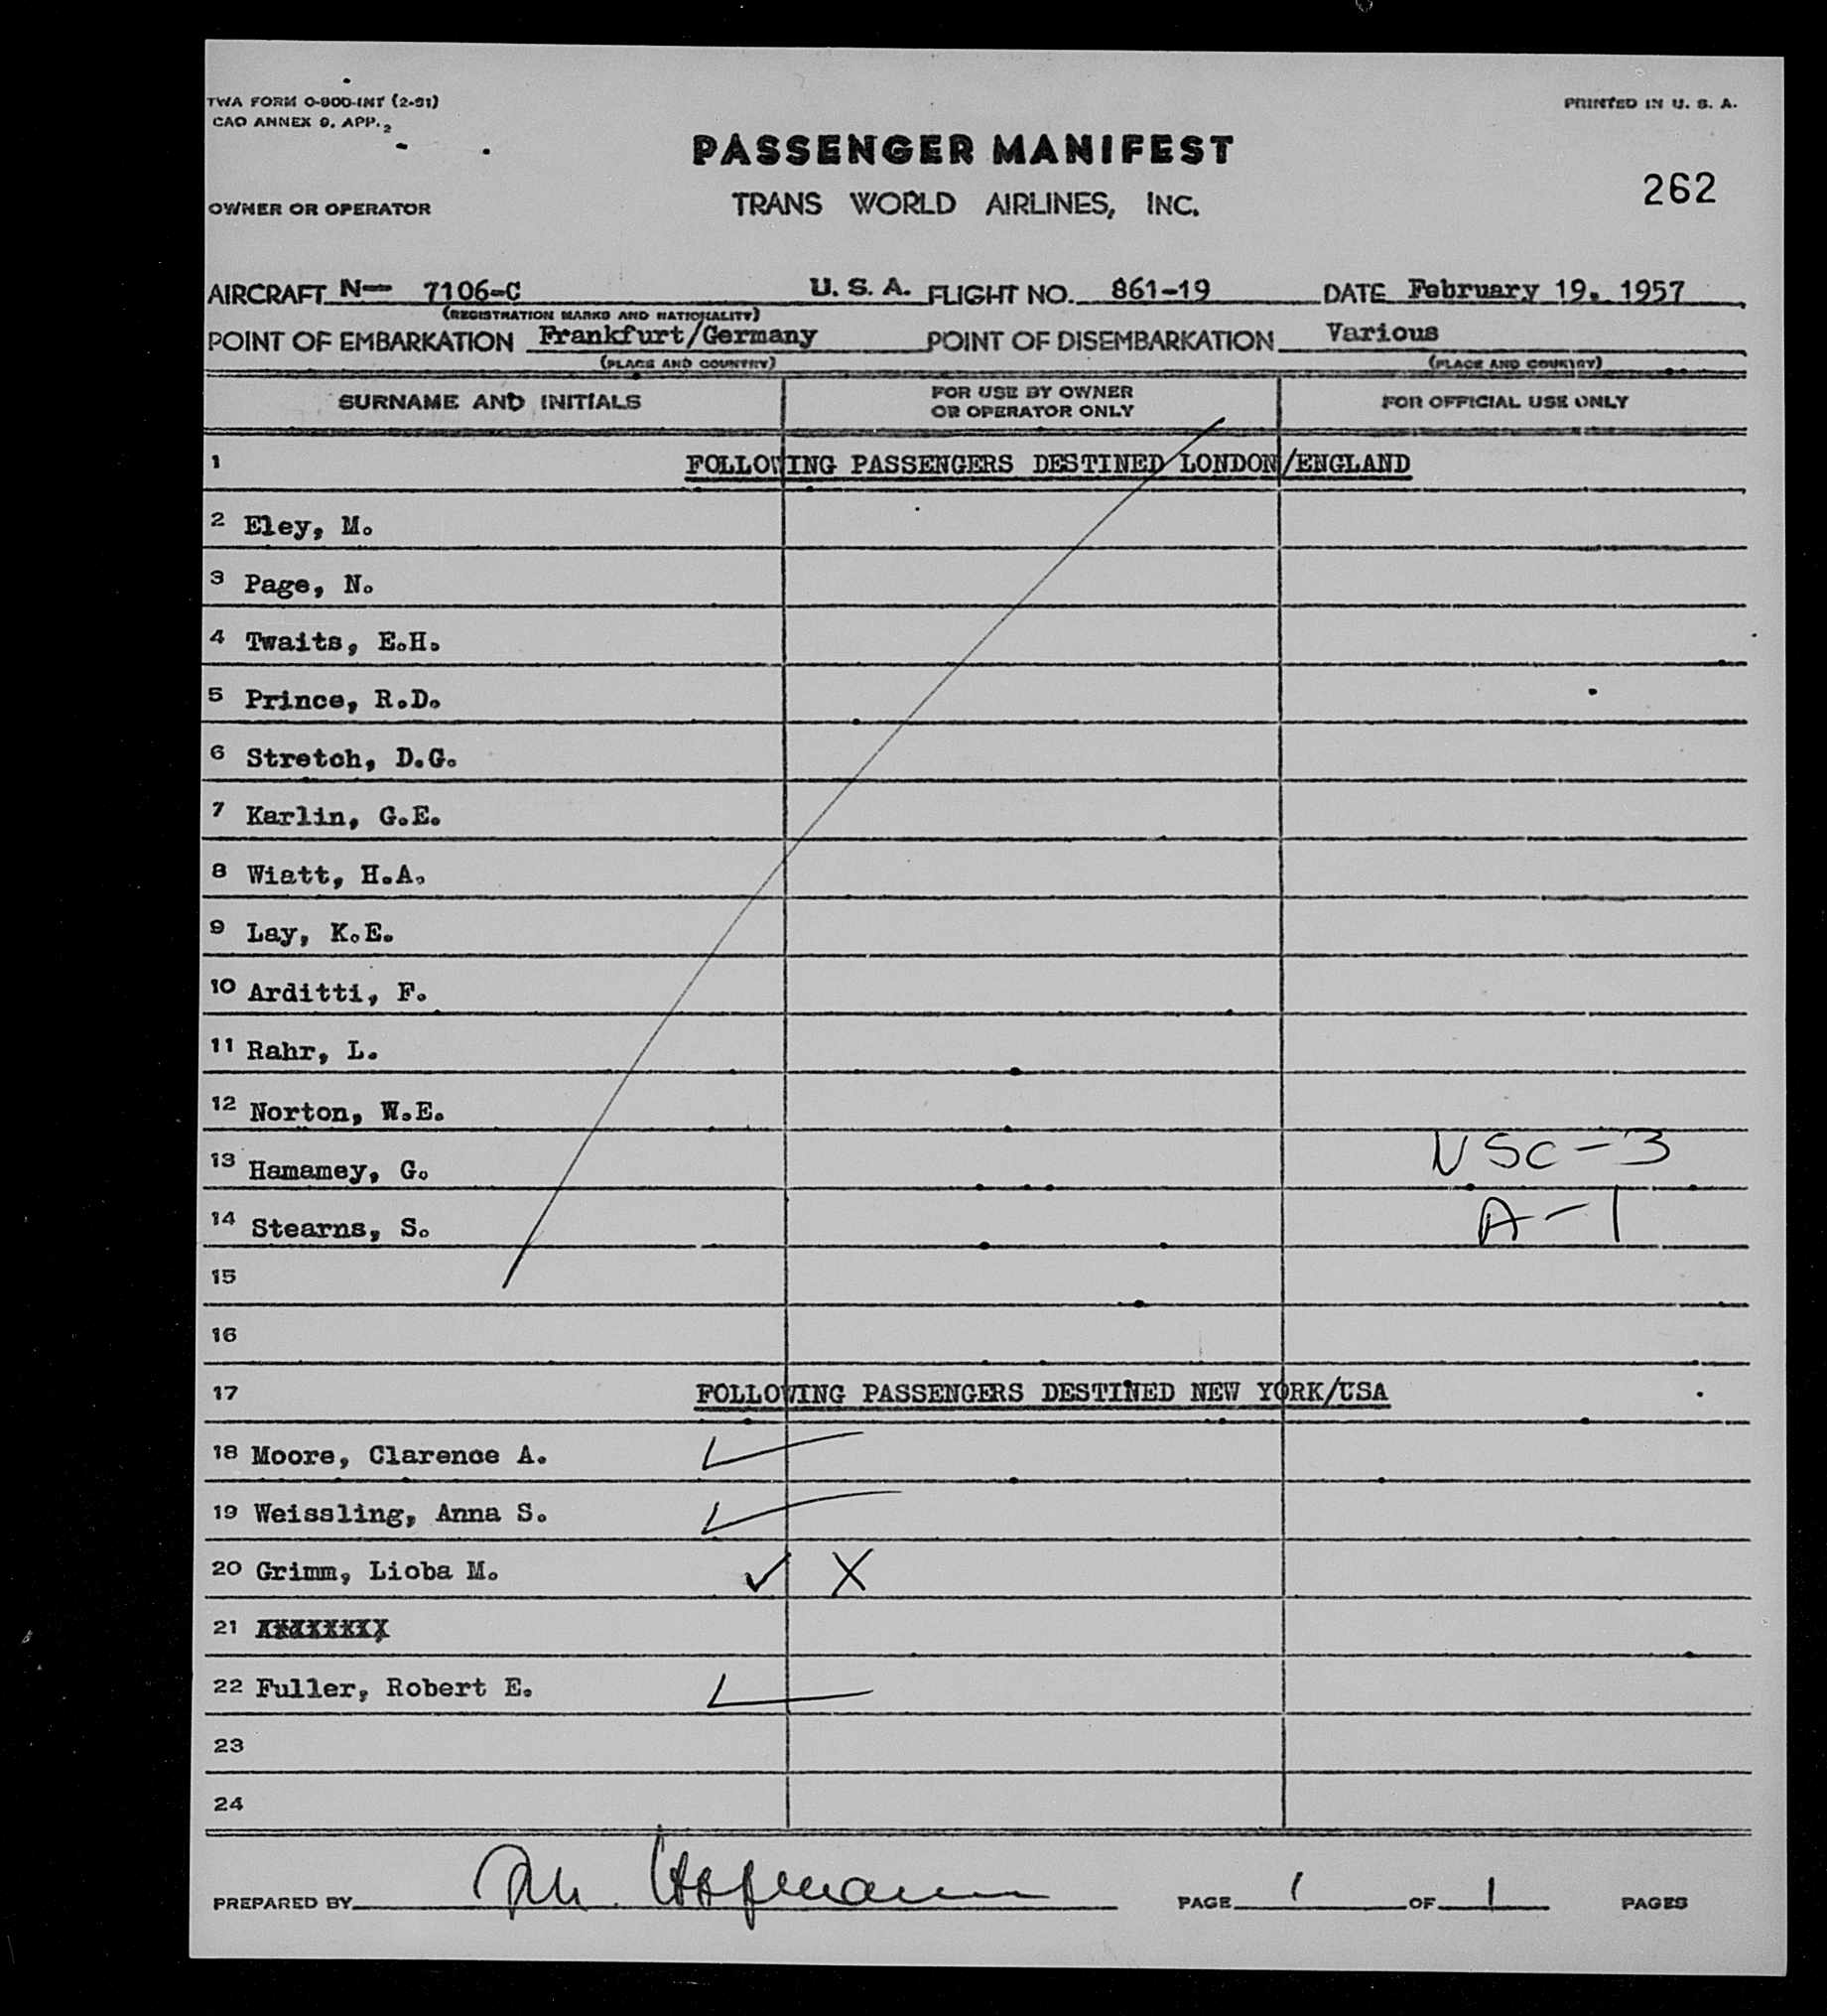 TWA FORM O-800-INT (2-51)
CAO ANNEX 9. APP. 2
PRINTED IN U. S. A.
PASSENGER MANIFEST
262
OWNER OR OPERATOR TRANS WORLD AIRLINES, INC.
AIRCRAFT N— 7106-C U. S. A. FLIGHT NO. 861-19 DATE February 19. 1957
(REGISTRATION MARKS AND NATIONALITY)
POINT OF EMBARKATION Frankfurt/Germany POINT OF DISEMBARKATION Various
(PLACE AND COUNTRY) (PLACE AND COUNTRY)
SURNAME AND INITIALS FOR USE BY OWNER OR OPERATOR ONLY FOR OFFICIAL USE ONLY
1 FOLLOWING PASSENGERS DESTINED LONDON/ENGLAND
2 Eley, M.
3 Page, N.
4 Twaits, E.H.
5 Prince, R.D.
6 Stretch, D.G.
7 Karlin, G.E.
8 Wiatt, H.A.
9 Lay, K.E.
10 Arditti, F.
11 Rahr, L.
12 Norton, W.E.
13 Hamamey, G. USC-3
14 Stearns, S. A-1
15
16
17 FOLLOWING PASSENGERS DESTINED NEW YORK/USA
18 Moore, Clarence A.
19 Weissling, Anna S.
20 Grimm, Lioba M. X
21
22 Fuller, Robert E.
23
24
PREPARED BY PAGE 1 OF 1 PAGES